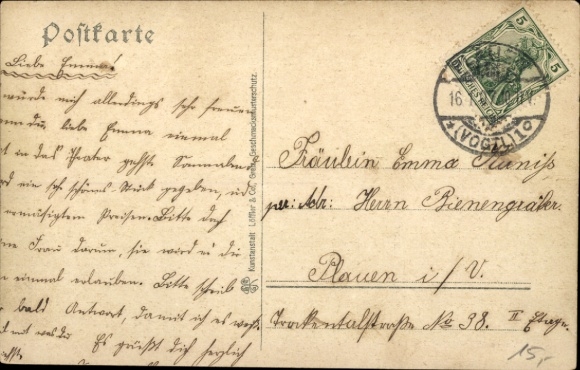 Postkarte
Liebe Emma!
würde mich allerdings sehr freuen
du, liebe Emma einmal
in das Theater gehst Sonnabend
wird ein sehr schönes Stück gegeben,
ermäßigten Preisen. Bitte doch
Frau darum, sie wird
einmal erlauben. Bitte schreib
bald Antwort, damit ich es weiß.
Es grüßt dich herzlich
Kunstanstalt Löffler & Co., Greiz. Geschmacksmusterschutz.
5
5
16.
(VOGTL.) 1
Fräulein Emma
per. Adr: Herrn Bienengräber.
Plauen i/V.
Trockentalstraße No 38. II Etage
15,-